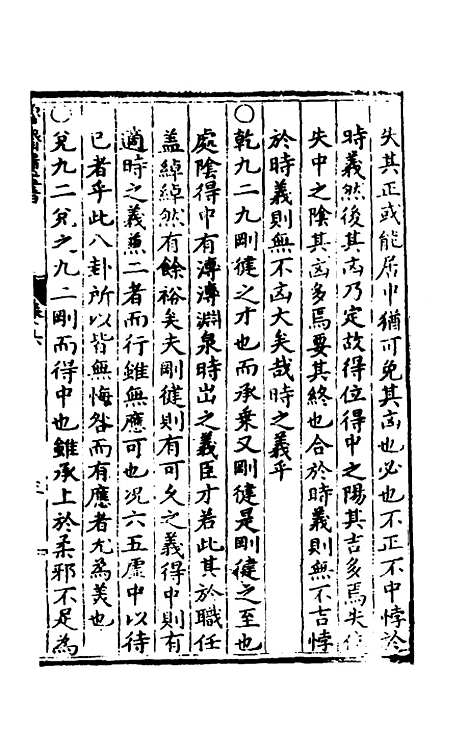 失其正或能居中猶可免其凶也必也不正不中悖於
時義然後其凶乃定故得位得中之陽其吉多焉失位
失中之陰其凶多焉要其終也合於時義則無不吉悖
於時義則無不凶大矣哉時之義乎
○乾九二九剛健之才也而承乗又剛健是剛健之至也
處陰得中有溥溥淵泉時出之義臣才若此其於職任
蓋綽綽然有餘裕矣夫剛健則有可久之義得中則有
適時之義兼二者而行雖無應可也况六五虛中以待
已者乎此八卦所以皆無悔咎而有應者尤為美也
○兌九二兌之九二剛而得中也雖承上於柔邪不足為